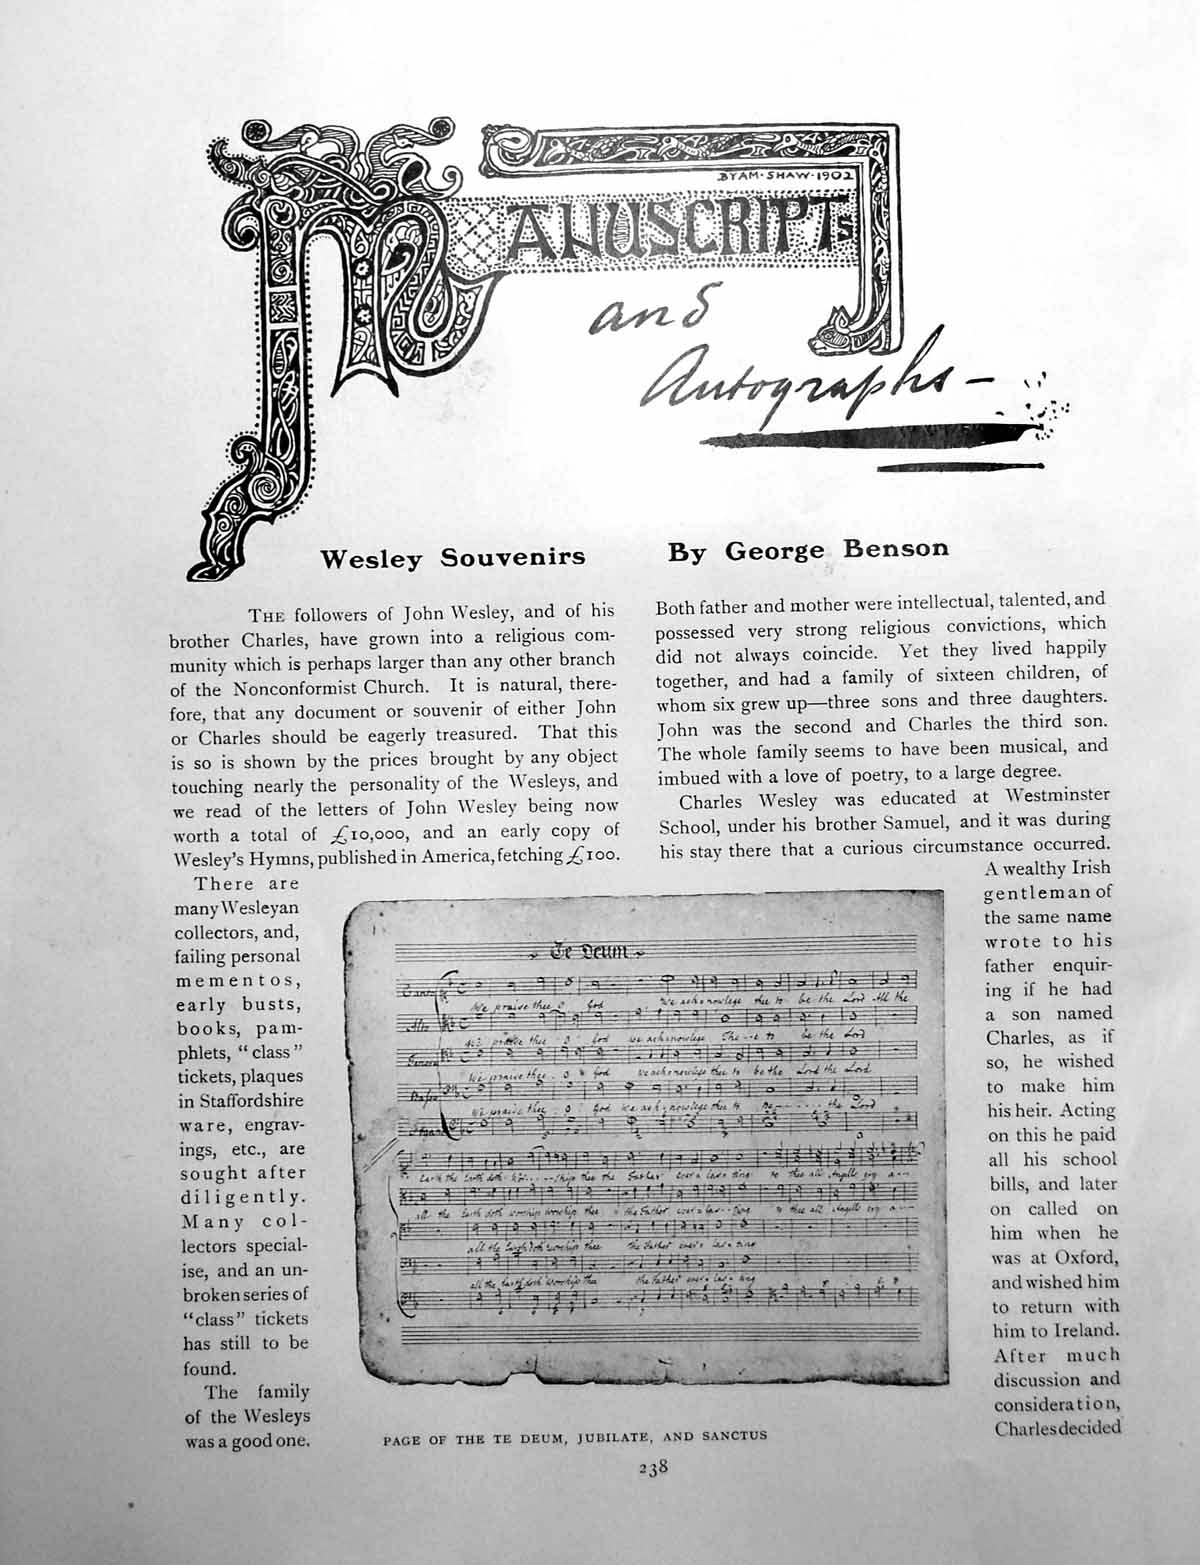 BYAM · SHAW · 1902
MANUSCRIPTS
and
Autographs —
Wesley Souvenirs
By George Benson
THE followers of John Wesley, and of his
brother Charles, have grown into a religious com-
munity which is perhaps larger than any other branch
of the Nonconformist Church. It is natural, there-
fore, that any document or souvenir of either John
or Charles should be eagerly treasured. That this
is so is shown by the prices brought by any object
touching nearly the personality of the Wesleys, and
we read of the letters of John Wesley being now
worth a total of £10,000, and an early copy of
Wesley's Hymns, published in America, fetching £100.
There are
many Wesleyan
collectors, and,
failing personal
mementos,
early busts,
books, pam-
phlets, "class"
tickets, plaques
in Staffordshire
ware, engrav-
ings, etc., are
sought after
diligently.
Many col-
lectors special-
ise, and an un-
broken series of
"class" tickets
has still to be
found.
The family
of the Wesleys
was a good one.
Both father and mother were intellectual, talented, and
possessed very strong religious convictions, which
did not always coincide. Yet they lived happily
together, and had a family of sixteen children, of
whom six grew up—three sons and three daughters.
John was the second and Charles the third son.
The whole family seems to have been musical, and
imbued with a love of poetry, to a large degree.
Charles Wesley was educated at Westminster
School, under his brother Samuel, and it was during
his stay there that a curious circumstance occurred.
A wealthy Irish
gentleman of
the same name
wrote to his
father enquir-
ing if he had
a son named
Charles, as if
so, he wished
to make him
his heir. Acting
on this he paid
all his school
bills, and later
on called on
him when he
was at Oxford,
and wished him
to return with
him to Ireland.
After much
discussion and
consideration,
Charles decided
Te Deum
We praise thee O God We acknowlege thee to be the Lord All the
Alto
praise thee O God we acknowlege The--e to be the Lord
We praise thee O God We acknowlege thee to be the Lord the Lord
We praise thee O God We acknowlege thee to be the Lord
Earth the Earth doth Wor-ship thee the Father ever-las-ting to thee all Angells cry a
all the Earth doth worship worship thee the Father ever-las-ting to thee all Angells cry a
all the Earth doth worship thee the Father ever-las-ting
all the Earth doth worship thee the Father ever-las-ting
PAGE OF THE TE DEUM, JUBILATE, AND SANCTUS
238